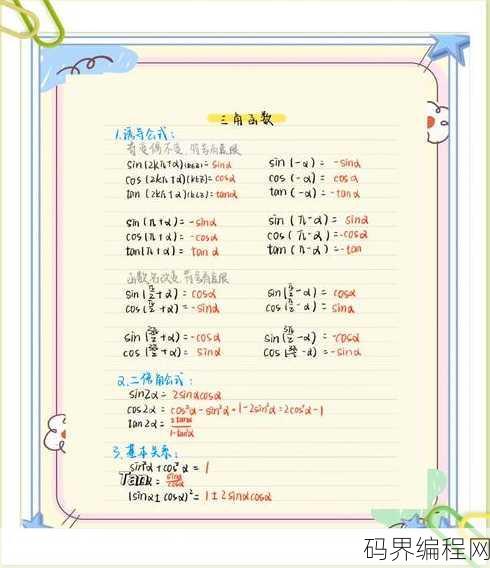 三角函数
1.诱导公式：
奇变偶不变，符号看象限
sin(2kπ+α)(k∈Z)=sinα sin(-α)=-sinα
cos(2kπ+α)(k∈Z)=cosα cos(-α)=cosα
tan(2kπ+α)(k∈Z)=tanα tan(-α)=-tanα
sin(π+α)=-sinα sin(π-α)=sinα
cos(π+α)=-cosα cos(π-α)=-cosα
tan(π+α)=tanα tan(π-α)=-tan
函数名改变，符号看象限
sin(π/2+α)=cosα sin(π/2-α)=cosα
cos(π/2+α)=-sinα cos(π/2-α)=sinα
sin(3π/2+α)=-cosα sin(3π/2-α)=-cosα
cos(3π/2+α)=sinα cos(3π/2-α)=-sinα
2.二倍角公式：
sin2α=2sinαcosα
cos2α=cos²α-sin²α=1-2sin²α=2cos²α-1
tan2α=2tanα/1-tan²α
3.基本关系：
sin²α+cos²α=1
Tanα=sinα/cosα
(sinα±cosα)²=1±2sinαcosα
码界编程网